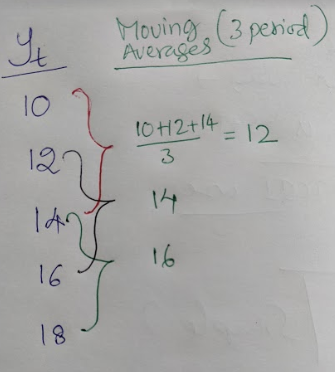 Yt
Moving Averages (3 period)
10
10+12+14 / 3 = 12
12
14
14
16
16
18